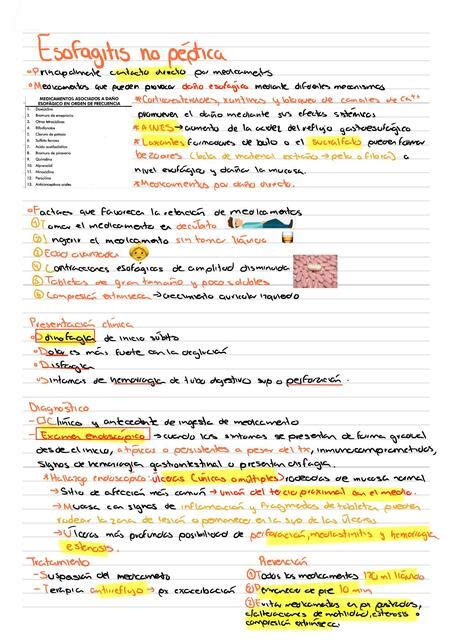 Esofagitis no péptica
Principalmente contacto directo por medicamentos
Medicamentos que pueden provocar daño esofágico mediante diferentes mecanismos
MEDICAMENTOS ASOCIADOS A DAÑO
ESOFÁGICO EN ORDEN DE FRECUENCIA
1. Doxiciclina
2. Bromuro de emepronio
3. Otras tetraciclinas
4. Rifampicina
5. Cloruro de potasio
6. Sulfato ferroso
7. Acido acetilsalicílico
8. Bromuro de pinaverio
9. Quinidina
10. Alprenolol
11. Minociclina
12. Penicilina
13. Anticonceptivos orales
*Corticoesteroides, xantinas y bloqueo de canales de Ca++
promueven el daño mediante sus efectos sistémicos
*AINES → aumento de la acidez del reflujo gastroesofágico
*Laxantes formadores de bulto o el sucralfato pueden formar
bezoares (bola de material extraño → pelo o fibra) a
nivel esofágico y dañar la mucosa.
*Medicamentos por daño directo.
Factores que favorecen la retención de medicamentos
① Tomar el medicamento en decúbito
② Ingerir el medicamento sin tomar líquido
③ Edad avanzada
④ Contracciones esofágicas de amplitud disminuida
⑤ Tabletas de gran tamaño y poco solubles
⑥ Compresión extrínseca → crecimiento auricular izquierdo
Presentación clínica
Odinofagia de inicio súbito
Dolor es más fuerte con la deglución
Disfagia
Síntomas de hemorragia de tubo digestivo sup o perforación.
Diagnóstico
- Clínico y antecedente de ingesta de medicamento
- Examen endoscópico → cuando los síntomas se presentan de forma gradual
desde el inicio, atípicos o persistentes a pesar del tx, inmunocomprometidos,
signos de hemorragia gastrointestinal o presentan disfagia.
*Hallazgo endoscópico: úlceras (únicas o múltiples) rodeadas de mucosa normal
→ Sitio de afección más común → unión del tercio proximal con el medio.
→ Mucosa con signos de inflamación y fragmentos de tableta pueden
rodear la zona de lesión o permanecer en la sup. de las úlceras
→ Úlceras más profundas posibilidad de perforación, mediastinitis y hemorragia
estenosis.
Tratamiento
- Suspensión del medicamento
- Terapia antirreflujo → px exacerbación
Prevención
① Todos los medicamentos 120 ml líquido
② Permanecer de pie 10 min
③ Evitar medicamentos en px postrados,
alteraciones de motilidad, estenosis o
compresión extrínseca.